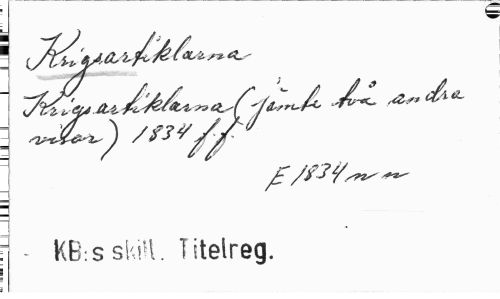 Krigsartiklarna
Krigsartiklarna (jämte två andra
visor) 1834 f.f.
E 1834 n n
KB:s skill. Titelreg.